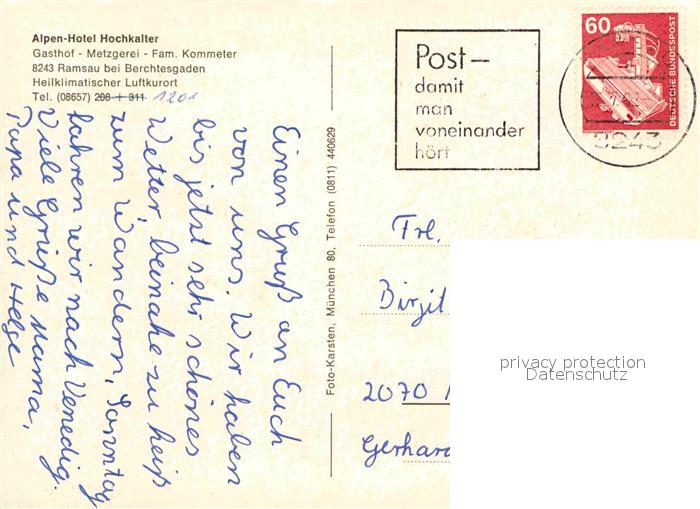 Alpen-Hotel Hochkalter
Gasthof - Metzgerei - Fam. Kommeter
8243 Ramsau bei Berchtesgaden
Heilklimatischer Luftkurort
Tel. (08657) 206 + 311 1201
Einen Gruß an Euch
von uns. Wir haben
bis jetzt sehr schönes
Wetter, beinahe zu heiß
zum Wandern, Sonntag
fahren wir nach Venedig.
Viele Grüße Mama,
Papa und Helge
Foto-Karsten, München 80, Telefon (0811) 440629
Post-
damit
man
voneinander
hört
60
DEUTSCHE BUNDESPOST
8243
Frl.
Birgit
2070
Gerhard
privacy protection
Datenschutz